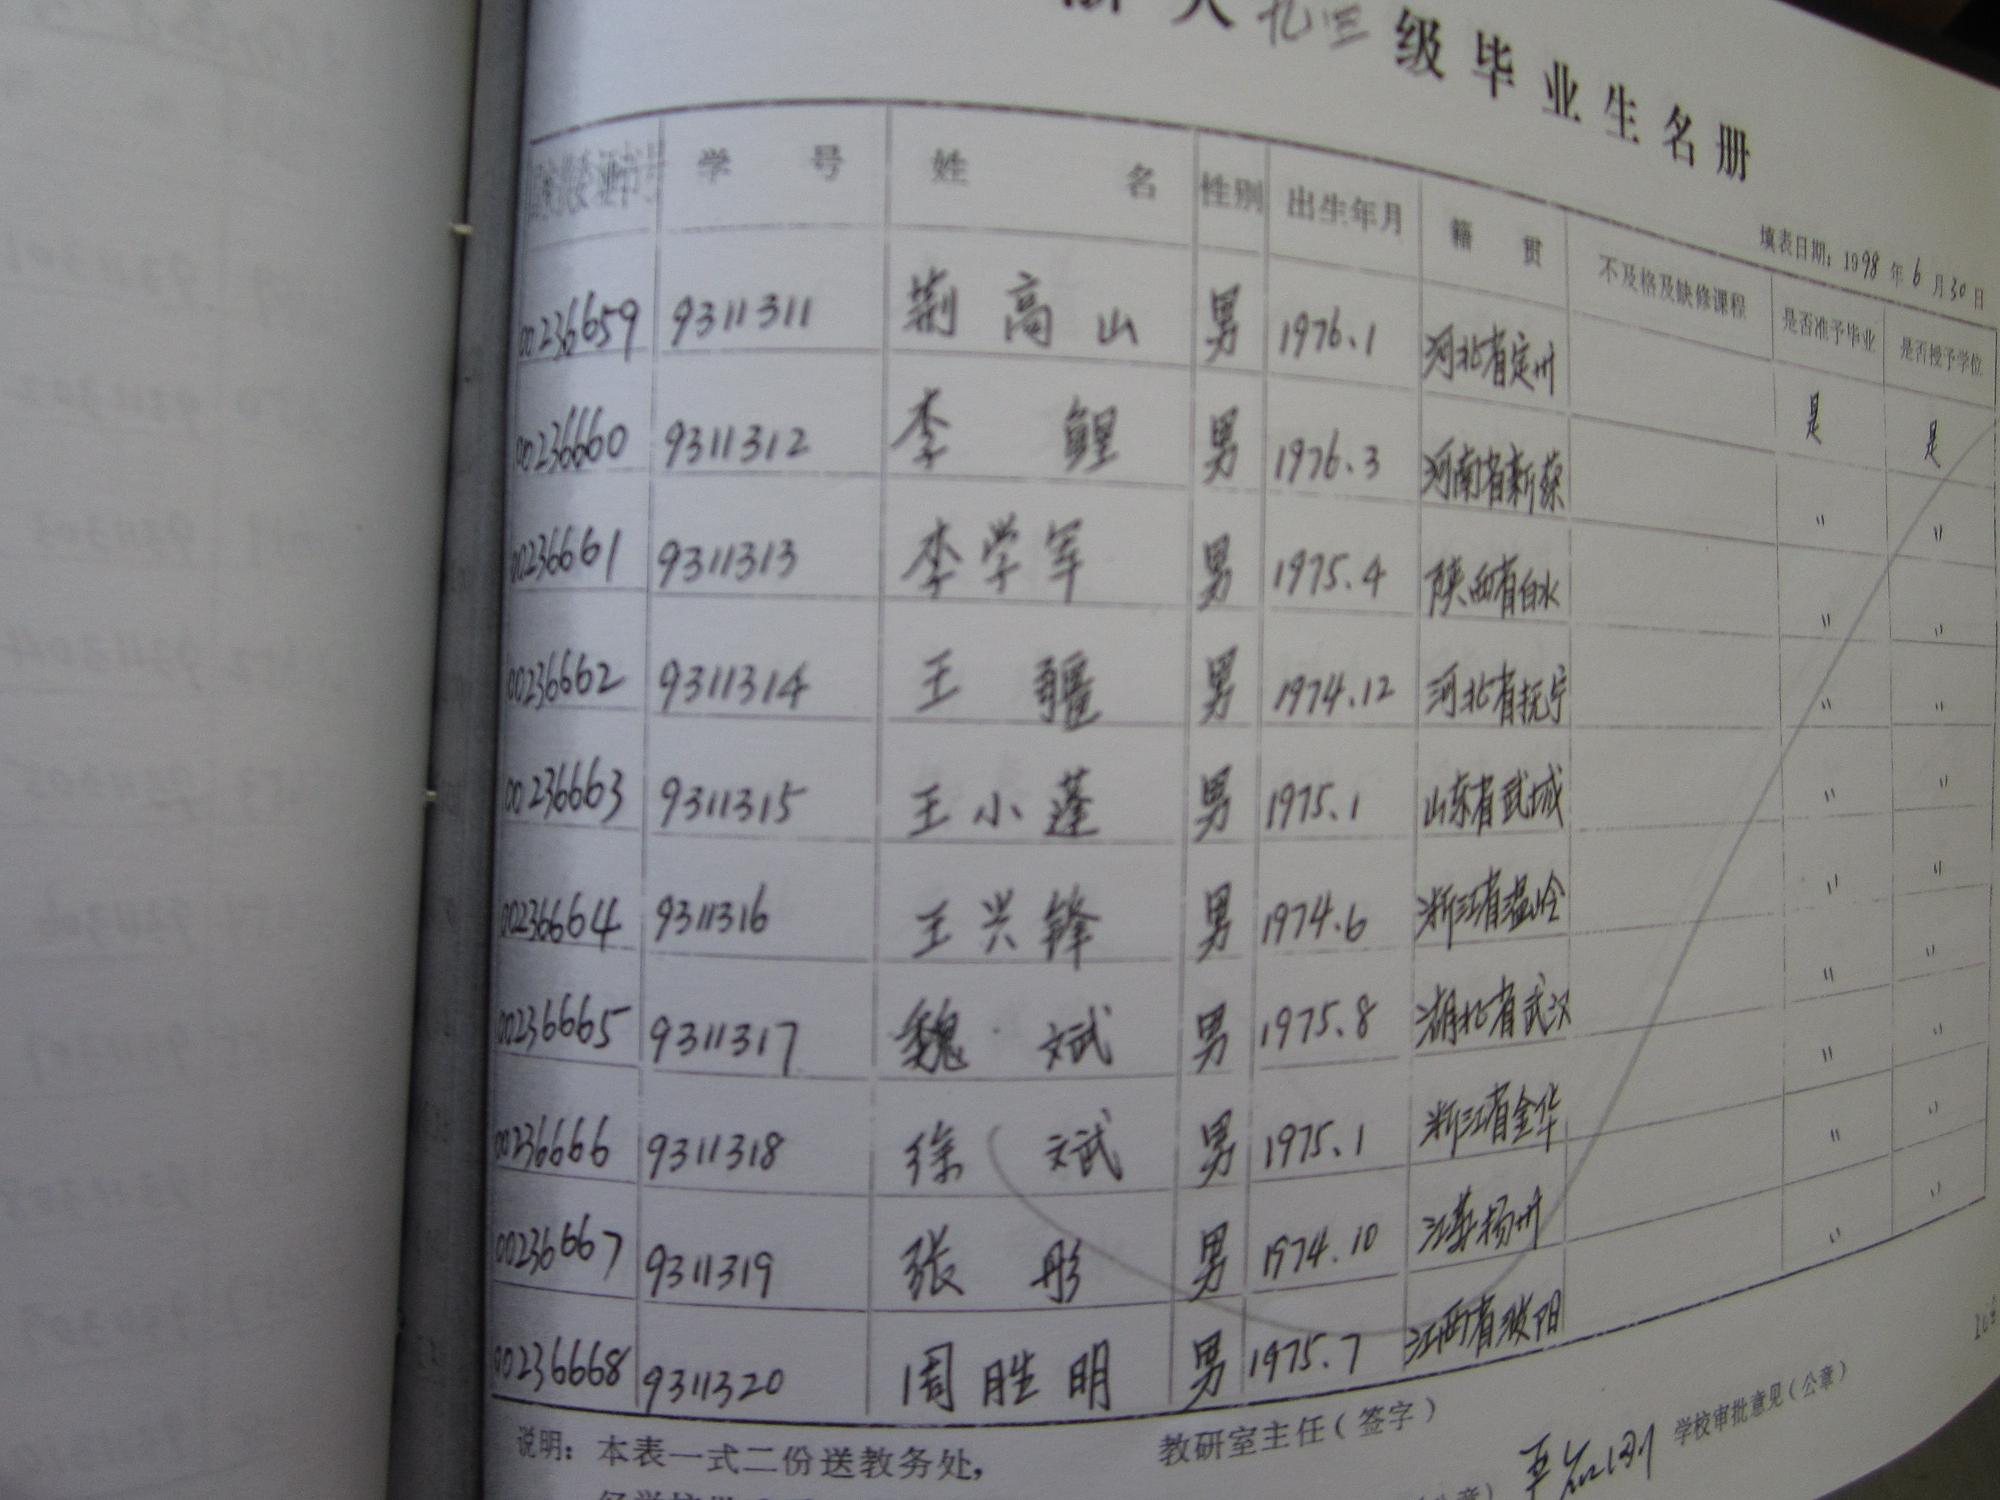 浙大九三级毕业生名册
填表日期：1998年6月30日
证书号 学号 姓名 性别 出生年月 籍贯 不及格及缺修课程 是否准予毕业 是否授予学位
00236659 9311311 荆高山 男 1976.1 河北省定州 是 是
00236660 9311312 李鲤 男 1976.3 河南省新蔡 〃 〃
00236661 9311313 李学军 男 1975.4 陕西省白水 〃 〃
00236662 9311314 王疆 男 1974.12 河北省抚宁 〃 〃
00236663 9311315 王小蓬 男 1975.1 山东省武城 〃 〃
00236664 9311316 王兴锋 男 1974.6 浙江省温岭 〃 〃
00236665 9311317 魏斌 男 1975.8 湖北省武汉 〃 〃
00236666 9311318 徐斌 男 1975.1 浙江省金华 〃 〃
00236667 9311319 张彤 男 1974.10 江苏扬州 〃 〃
00236668 9311320 周胜明 男 1975.7 江西省波阳 〃 〃
说明：本表一式二份送教务处， 教研室主任（签字） 学校审批意见（公章）